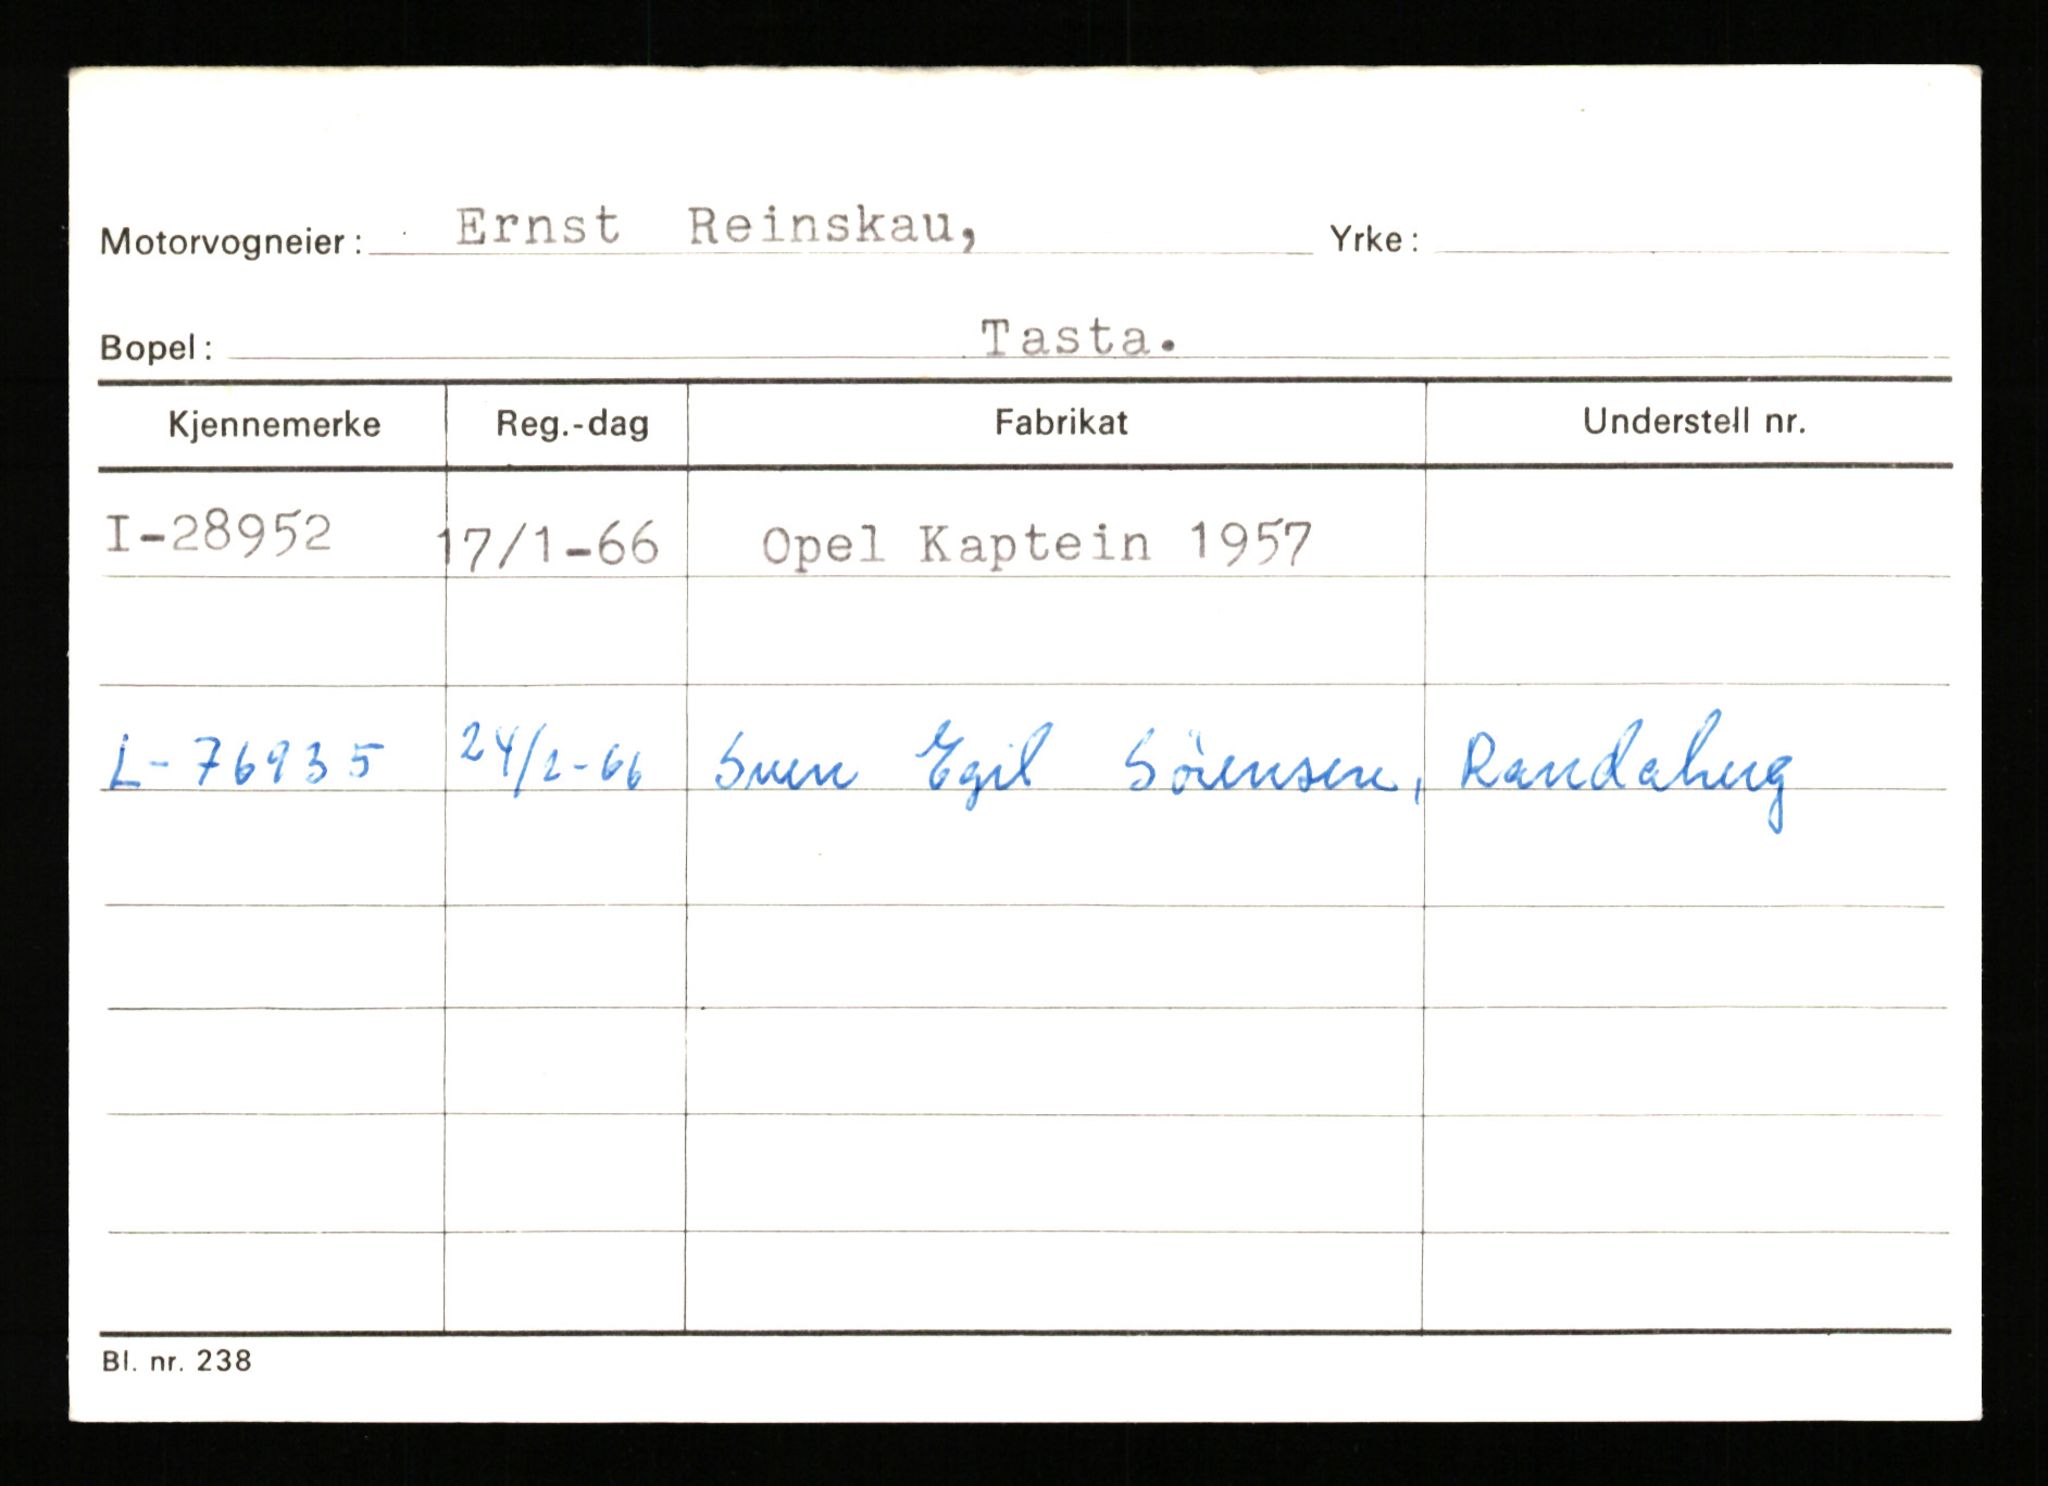 Motorvogneier: Ernst Reinskau, Yrke:
Bopel: Tasta.
Kjennemerke Reg.-dag Fabrikat Understell nr.
I-28952 17/1-66 Opel Kaptein 1957
L-76935 24/2-66 Sven Egil Sörensen, Randaberg
Bl. nr. 238